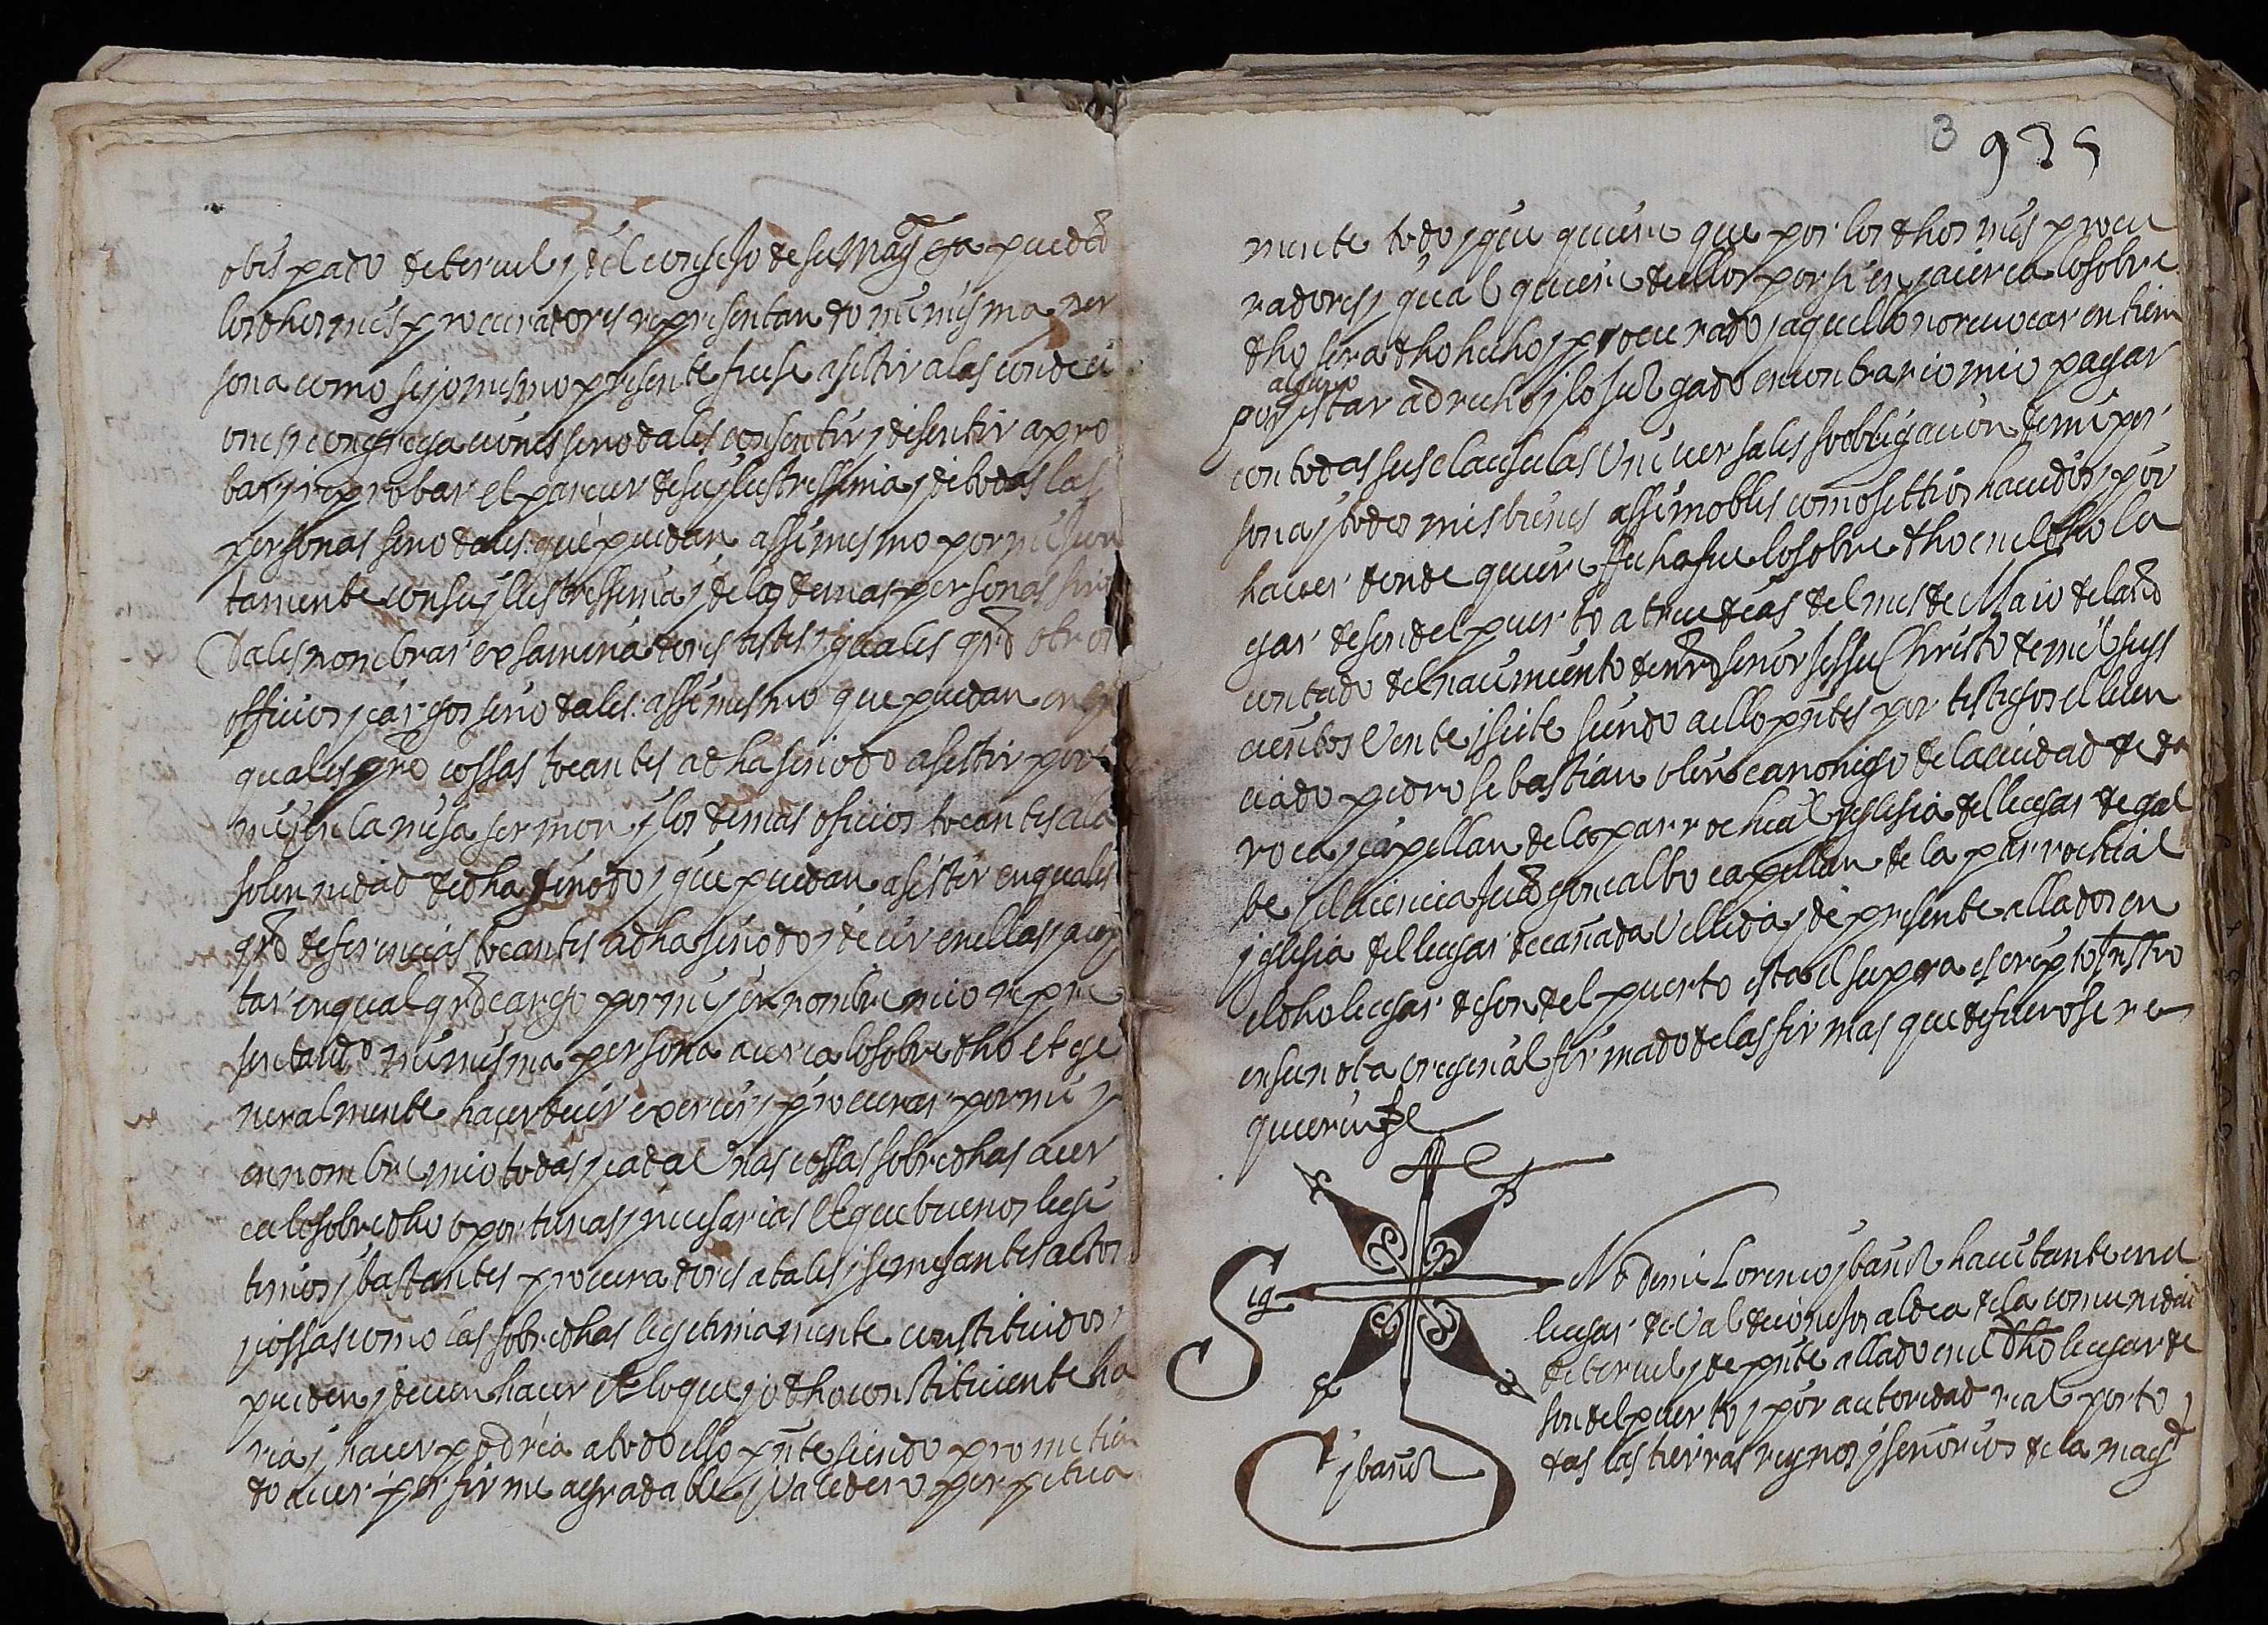 obispado de teruel j del consejo de su Magd pueda
los dhos mis procuradores representando mi misma per
sona como si jo mismo presente fuese asistir a las condici
ones j congregaciones sinodales consentir j disentir apro
bar j reprobar el parecer de su jlustrissima j de todas las
personas sinodales. que puedan assimesmo por mi jun
tamente con su jllustrissima j de las demas personas sino
dales nombrar exsaminadores testes j quales qro otros
officios j cargos sinodales. assimesmo que puedan en
quales qro cossas tocantes a dha sinodo asistir por
mi j en la misa sermon j los demas oficios tocantes a la
solennidad de dha sinodo j que puedan asistir en quales
qro diferencias tocantes a dha sinodo j decir en ellas j acep
tar en qual qro cargo por mi j en nombre mio repre
sentando mi misma persona acerca lo sobre dho et ge
neralmente hacer decir exercir j procurar por mi j
en nombre mio todas j cada unas cossas sobre dhas acer
ca lo sobre dho oportunas j necesarias Et que buenos legi
timos j bastantes procuradores a tales j semejantes actos
j cossas como las sobre dhas legitimamente constituidos
pueden j deven hacer et lo que jo dho constituiente ha
ria j hacer podria a todo ello pnte siendo prometien
do aver por firme agradable j valedero perpetua
3 935
mente todo j que quiere que por los dhos mis procu
radores j qual quiere dellos por si en j acerca lo sobre
dho sera dho hecho j procurado j aquello no revocar en tiem
alguno
po j estar a drecho j lo juzgado en contrario mio pagar
con todas sus clausulas universales so obligacion de mi per
sona j todos mis bienes assi mobles como sittios havidos j por
haver donde quiere fecha fue lo sobre dho en el dho lu
gar de son del puerto a trece dias del mes de Maio del año
contado del nacimiento de nro señor Jessu Christo de mil seys
cientos vente j siete siendo a ello pntes por testigos el licen
ciado pedro sebastian oliver canonigo de la ciudad de da
roca j capellan de la parrochial jglesia del lugar de gal
be j el licencia Juo goncalbo capellan de la parrochial
jglesia del lugar de cañada vellida j de presente allados en
el dho lugar de son del puerto esta el supra escripto instro
en su nota original firmado de las firmas que de fuero se re
quieren
Sig No de mi Lorenco jbañez havitante en el
lugar de Valdeconejos aldea de la comunidad
de teruel j de pnte allado en el dho lugar de
son del puerto j por autoridad real por to
das las tierras reynos j señorios de la magd
jbañez